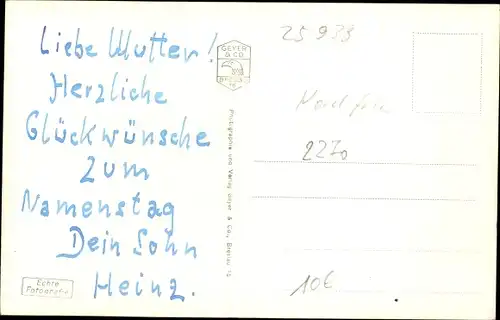 Liebe Mutter!
Herzliche
Glückwünsche
zum
Namenstag
Dein Sohn
Heinz.
Echte
Fotografie
GEYER
& CO.
BRESLAU
Photographie und Verlag Geyer & Co., Breslau
25933
2270
10€